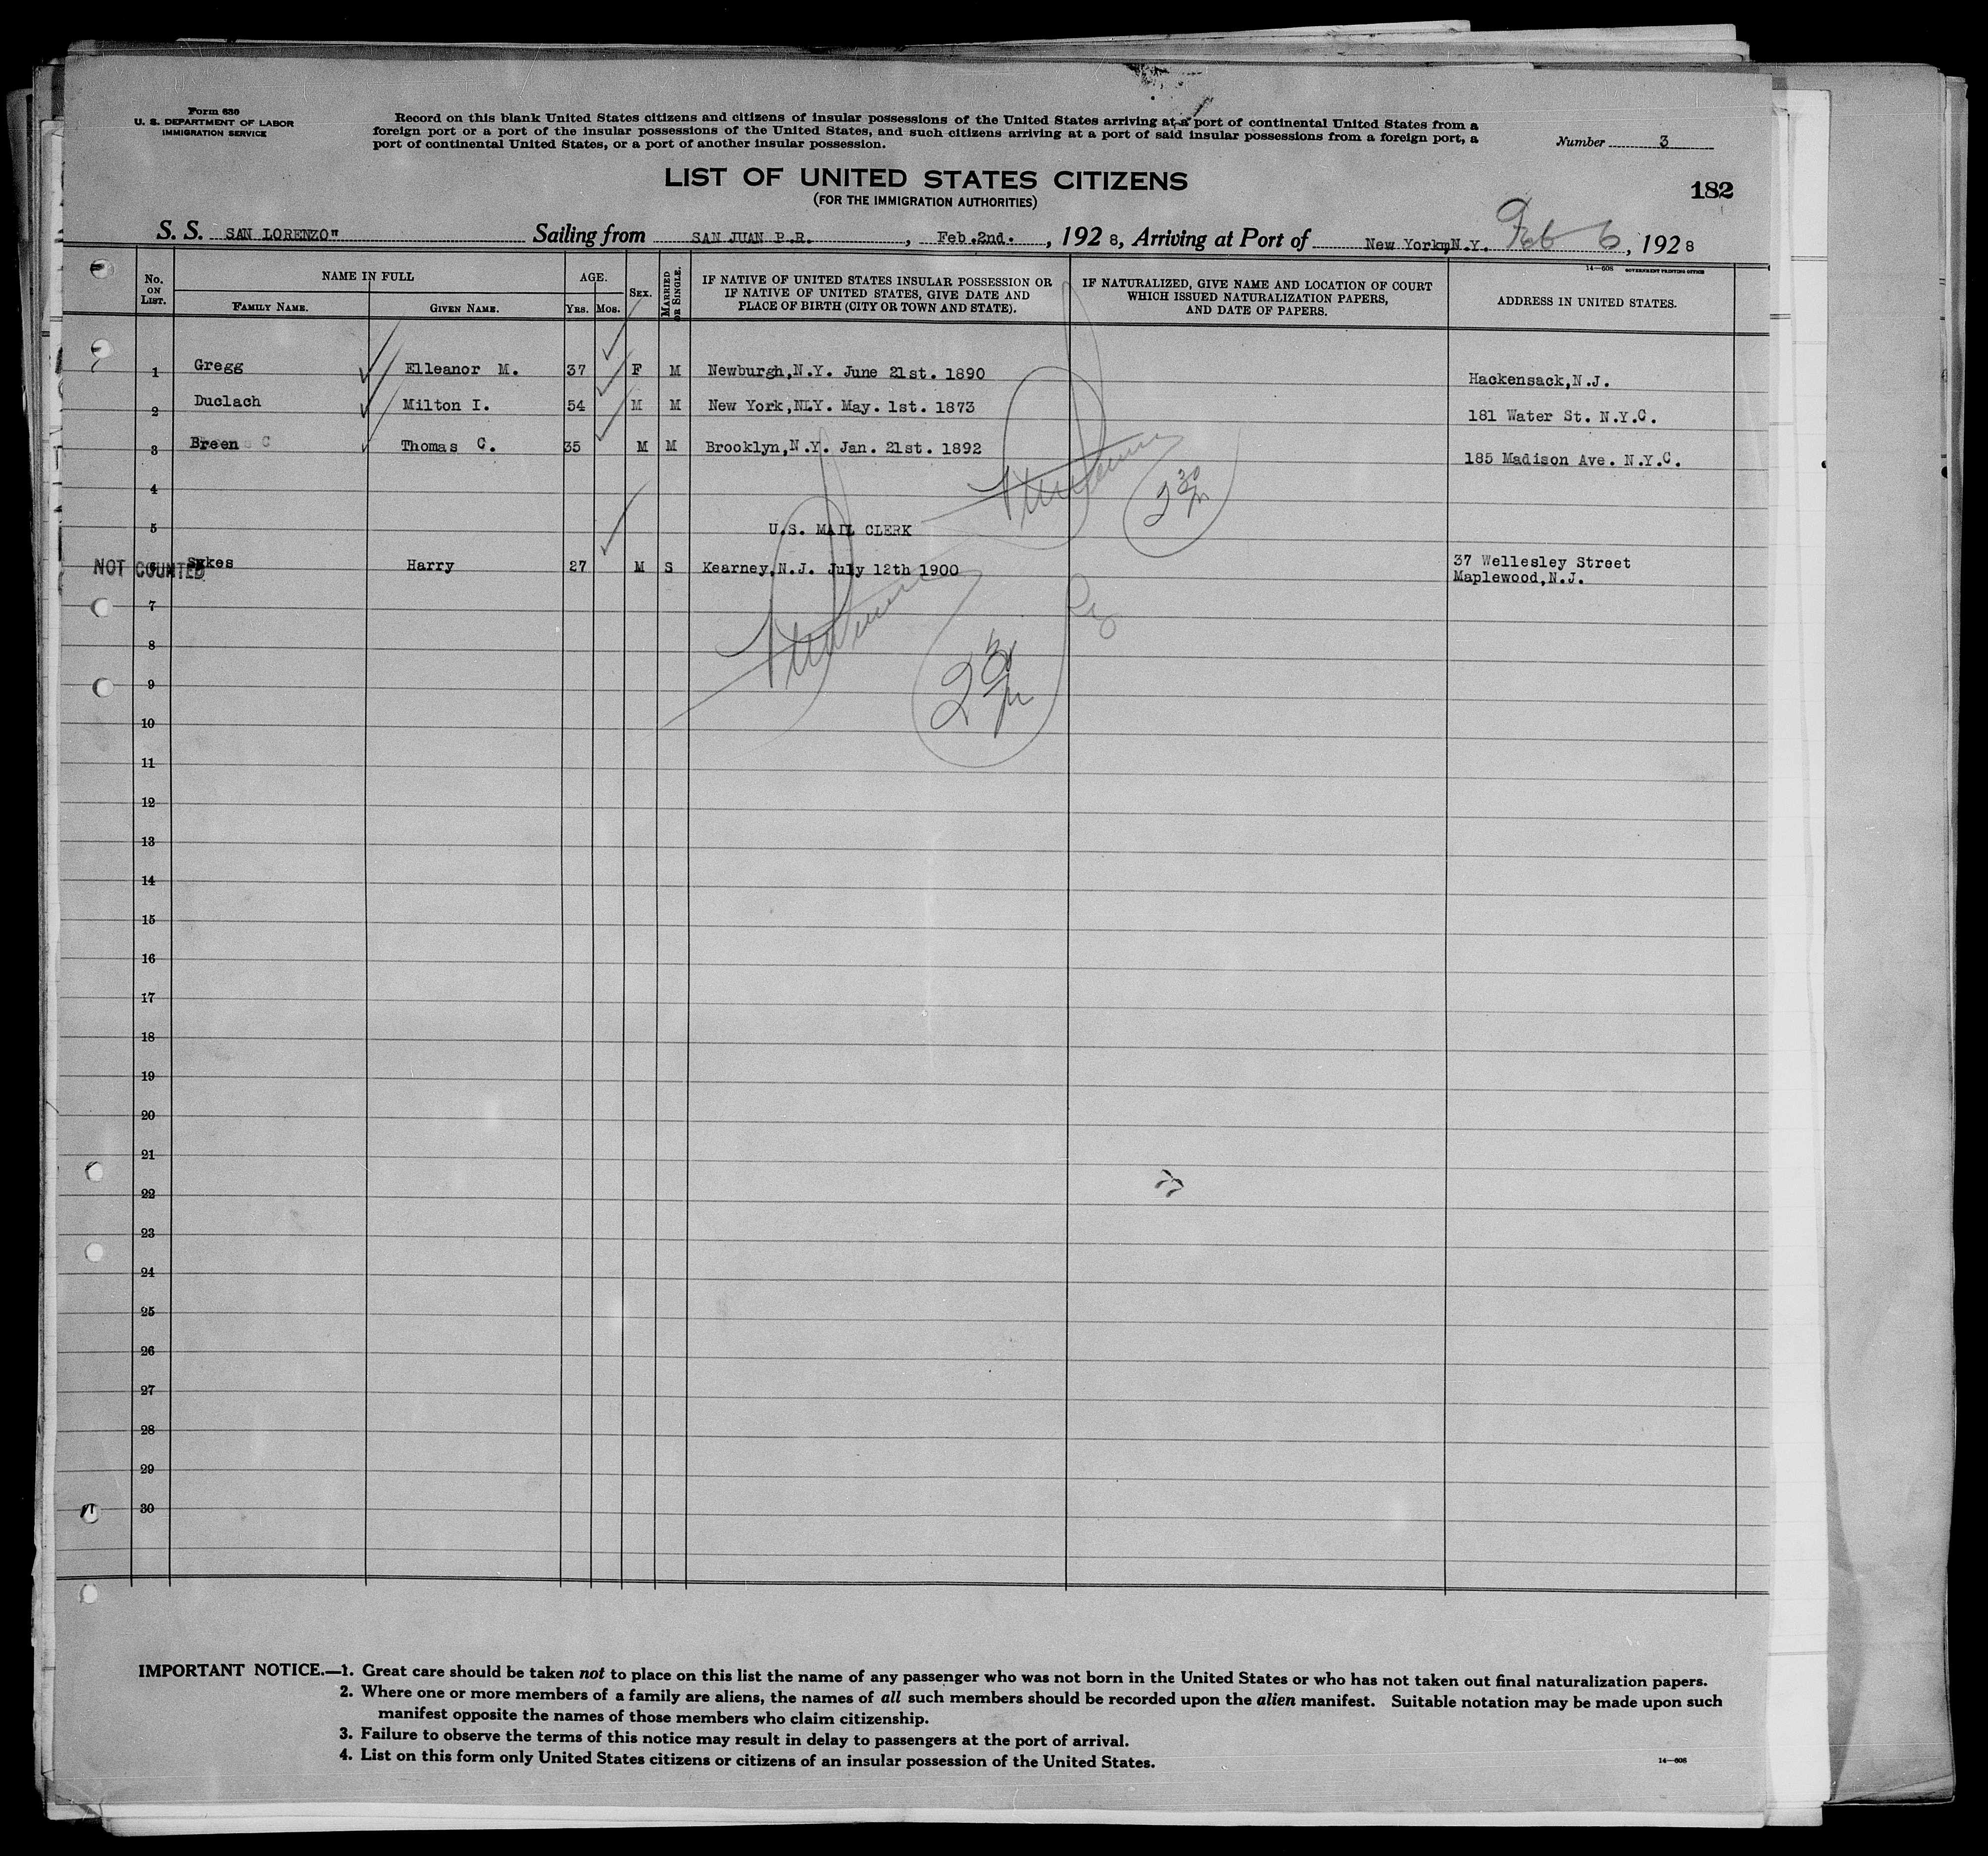 Form 630
U. S. DEPARTMENT OF LABOR
IMMIGRATION SERVICE
Record on this blank United States citizens and citizens of insular possessions of the United States arriving at a port of continental United States from a
foreign port or a port of the insular possessions of the United States, and such citizens arriving at a port of said insular possessions from a foreign port, a
port of continental United States, or a port of another insular possession.
Number 3
LIST OF UNITED STATES CITIZENS
(FOR THE IMMIGRATION AUTHORITIES)
182
S. S. SAN LORENZO" Sailing from SAN JUAN P.R. , Feb.2nd. , 192 8, Arriving at Port of New York,N.Y. Feb 6 , 192 8
14—608 GOVERNMENT PRINTING OFFICE
No. ON LIST. NAME IN FULL AGE. SEX. MARRIED OR SINGLE. IF NATIVE OF UNITED STATES INSULAR POSSESSION OR IF NATIVE OF UNITED STATES, GIVE DATE AND PLACE OF BIRTH (CITY OR TOWN AND STATE). IF NATURALIZED, GIVE NAME AND LOCATION OF COURT WHICH ISSUED NATURALIZATION PAPERS, AND DATE OF PAPERS. ADDRESS IN UNITED STATES.
FAMILY NAME. GIVEN NAME. YRS. MOS.
1 Gregg Elleanor M. 37 F M Newburgh,N.Y. June 21st. 1890 Hackensack,N.J.
2 Duclach Milton I. 54 M M New York,N.Y. May. 1st. 1873 181 Water St. N.Y.C.
3 Breen Thomas C. 35 M M Brooklyn,N.Y. Jan. 21st. 1892 185 Madison Ave. N.Y.C.
4
5 U.S. MAIL CLERK
NOT COUNTED 6 Sykes Harry 27 M S Kearney,N.J. July 12th 1900 37 Wellesley Street
Maplewood,N.J.
7
8
9
10
11
12
13
14
15
16
17
18
19
20
21
22
23
24
25
26
27
28
29
30
IMPORTANT NOTICE.—1. Great care should be taken not to place on this list the name of any passenger who was not born in the United States or who has not taken out final naturalization papers.
2. Where one or more members of a family are aliens, the names of all such members should be recorded upon the alien manifest. Suitable notation may be made upon such
manifest opposite the names of those members who claim citizenship.
3. Failure to observe the terms of this notice may result in delay to passengers at the port of arrival.
4. List on this form only United States citizens or citizens of an insular possession of the United States.
14—608